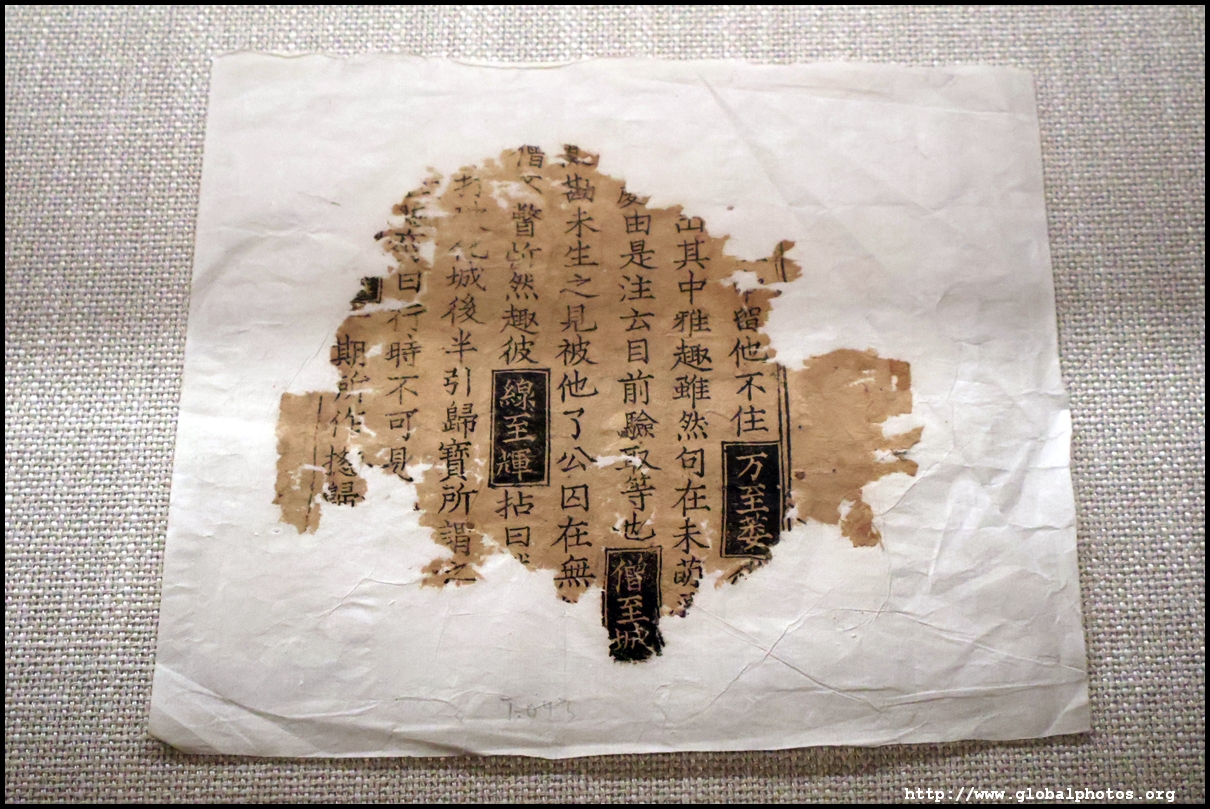 留他不住万至蒌
其中雅趣雖然句在未萌
由是注云目前驗取等也僧至城
勘未生之見被他了公因在無
僧瞥然趣彼線至輝拈曰
城後半引歸寶所謂之
曰行時不可見
期所作搖歸
http://www.globalphotos.org